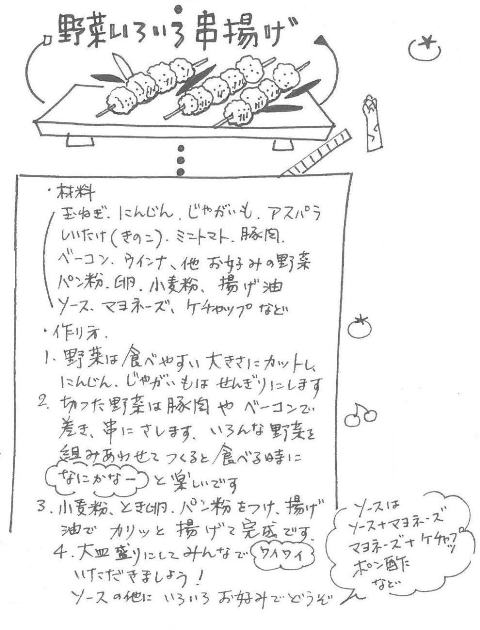 野菜いろいろ串揚げ
・材料
玉ねぎ、にんじん、じゃがいも、アスパラ
しいたけ(きのこ)、ミニトマト、豚肉、
ベーコン、ウインナ、他お好みの野菜
パン粉、卵、小麦粉、揚げ油
ソース、マヨネーズ、ケチャップなど
・作り方、
1. 野菜は食べやすい大きさにカットし、
にんじん、じゃがいもはせんぎりにします
2. 切った野菜は豚肉やベーコンで
巻き、串にさします、いろんな野菜を
組みあわせてつくると食べる時に
なにかなーと楽しいです
3. 小麦粉、とき卵、パン粉をつけ、揚げ
油でカリッと揚げて完成です、
4. 大皿盛りにしてみんなでワイワイ
いただきましょう!
ソースの他にいろいろお好みでどうぞ
ソースは
ソース+マヨネーズ
マヨネーズ+ケチャップ
ポン酢
など